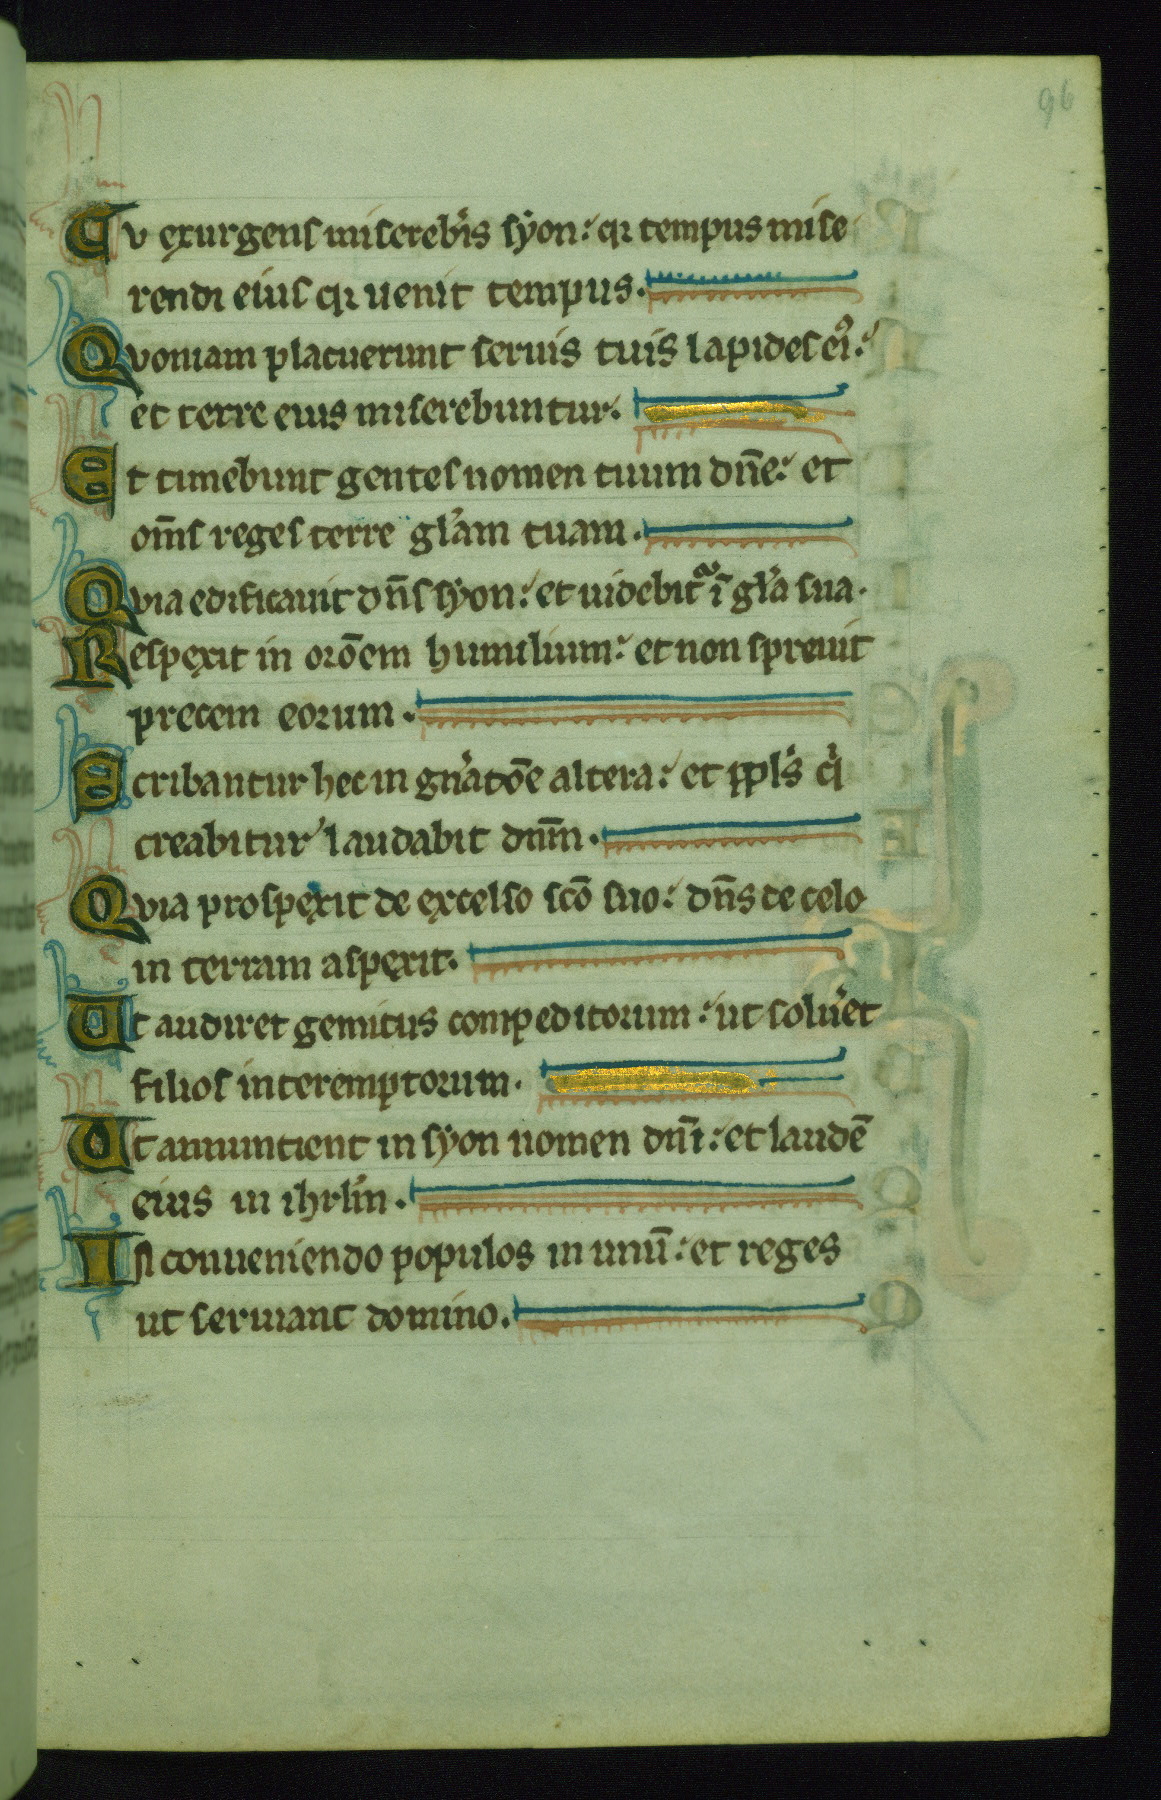 96
Tu exurgens misereb̾is syon: qr tempus mise
rendi eius qr uenit tempus.
Quoniam placuerunt seruis tuis lapides ei᾿:
et terre eius miserebuntur.
Et timebunt gentes nomen tuum dn̄e: et
om̄s reges terre gl̾am tuam.
Quia edificauit dn̄s syon: et uidebit᷑ ī gl̾a sua.
Respexit in orōem humilium: et non spreuit
precem eorum.
Scribantur hec in gn̾atōe altera: et ppl̾s q̇
creabitur laudabit dnm̄.
Quia prospexit de excelso scō suo: dn̄s de celo
in terram aspexit.
Ut audiret gemitus compeditorum: ut solu̾et
filios interemptorum.
Ut annuntient in syon nomen dn̄i: et laudē
eius in ihrl̾m.
In conueniendo populos in unū: et reges
ut seruiant domino.